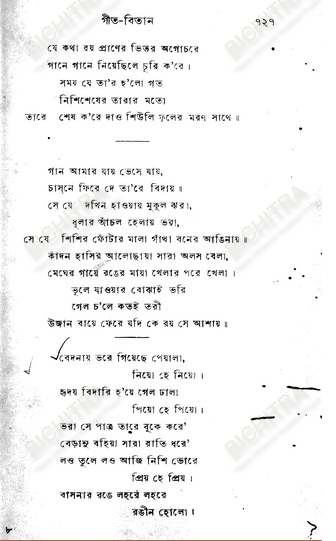 গীত-বিতান ৭২৭
যে কথা রয় প্রাণের ভিতর অগোচরে
গানে গানে নিয়েছিলে চুরি ক'রে।
সময় যে তা'র চ'লো গত
নিশিশেষের তারার মতো
তারে শেষ ক'রে দাও শিউলি ফুলের মরণ সাথে॥
গান আমার যায় ভেসে যায়,
চাস্‌নে ফিরে দে তা'রে বিদায়॥
সে যে দখিন হাওয়ায় মুকুল ঝরা,
ধূলার আঁচল হেলায় ভরা,
সে যে শিশির ফোঁটার মালা গাঁথা বনের আঙিনায়॥
কাঁদন হাসির আলোছায়া সারা অলস বেলা,
মেঘের গায়ে রঙের মায়া খেলার পরে খেলা।
ভুলে যাওয়ার বোঝাই ভরি
গেল চ'লে কতই তরী
উজান বায়ে ফেরে যদি কে রয় সে আশায়॥
বেদনায় ভরে গিয়েছে পেয়ালা,
নিয়ো হে নিয়ো।
হৃদয় বিদারি হ'য়ে গেল ঢালা
পিয়ো হে পিয়ো।
ভরা সে পাত্র তারে বুকে করে'
বেড়ানু বহিয়া সারা রাতি ধরে'
লও তুলে লও আজি নিশি ভোরে
প্রিয় হে প্রিয়।
বাসনার রঙে লহরে লহরে
রঙীন হোলো।
৮ ?
BICHITRA